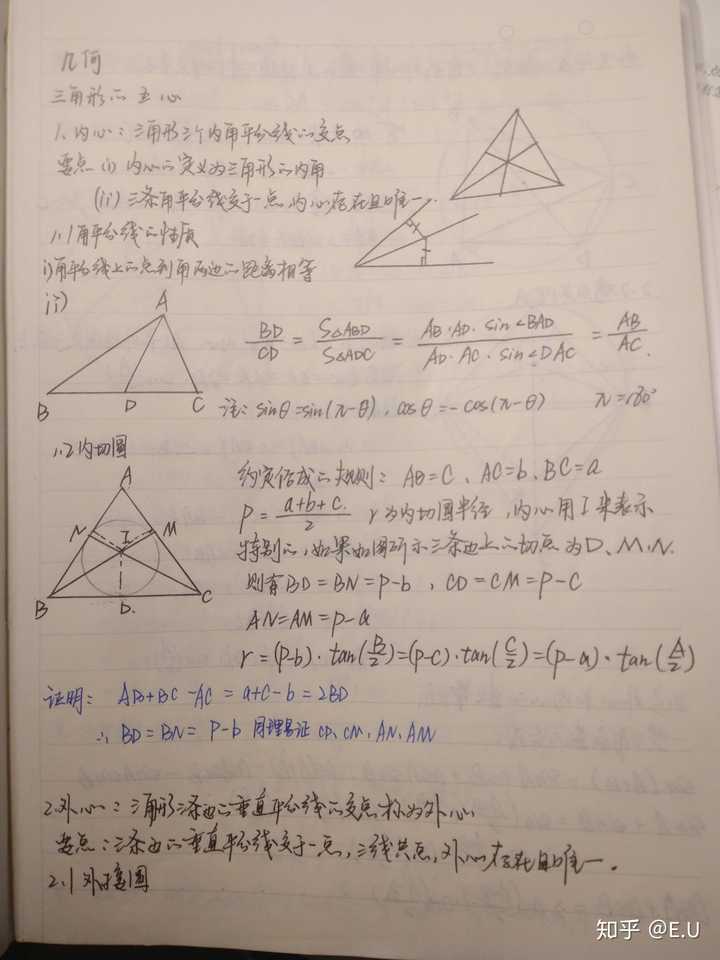 几何
三角形的五心
1、内心：三角形三个内角平分线的交点
要点 (i) 内心的定义为三角形的内角
(ii) 三条角平分线交于一点,内心存在且唯一.
1.1角平分线的性质
i)角平分线上的点到角两边的距离相等
ii)
A
B D C
BD/CD = S△ABD/S△ADC = AB·AD·sin∠BAD/AD·AC·sin∠DAC = AB/AC.
注: sinθ=sin(π-θ), cosθ=-cos(π-θ) π=180°
1.2内切圆
A
N I M
B D. C
约定俗成的规则: AB=C、AC=b、BC=a
P = a+b+c./2 r为内切圆半径,内心用I来表示
特别的,如果如图所示三条边上的切点为D、M、N.
则有BD=BN=P-b , CD=CM=P-C
AN=AM=P-a
r=(P-b)·tan(B/2)=(P-C)·tan(C/2)=(P-a)·tan(A/2)
证明: AB+BC-AC=a+C-b=2BD
∴ BD=BN=P-b 同理易证 CD、CM、AN、AM
2.外心:三角形三条边的垂直平分线的交点称为外心
要点:三条边的垂直平分线交于一点,三线共点,外心存在且唯一.
2.1外接圆
知乎 @E.U